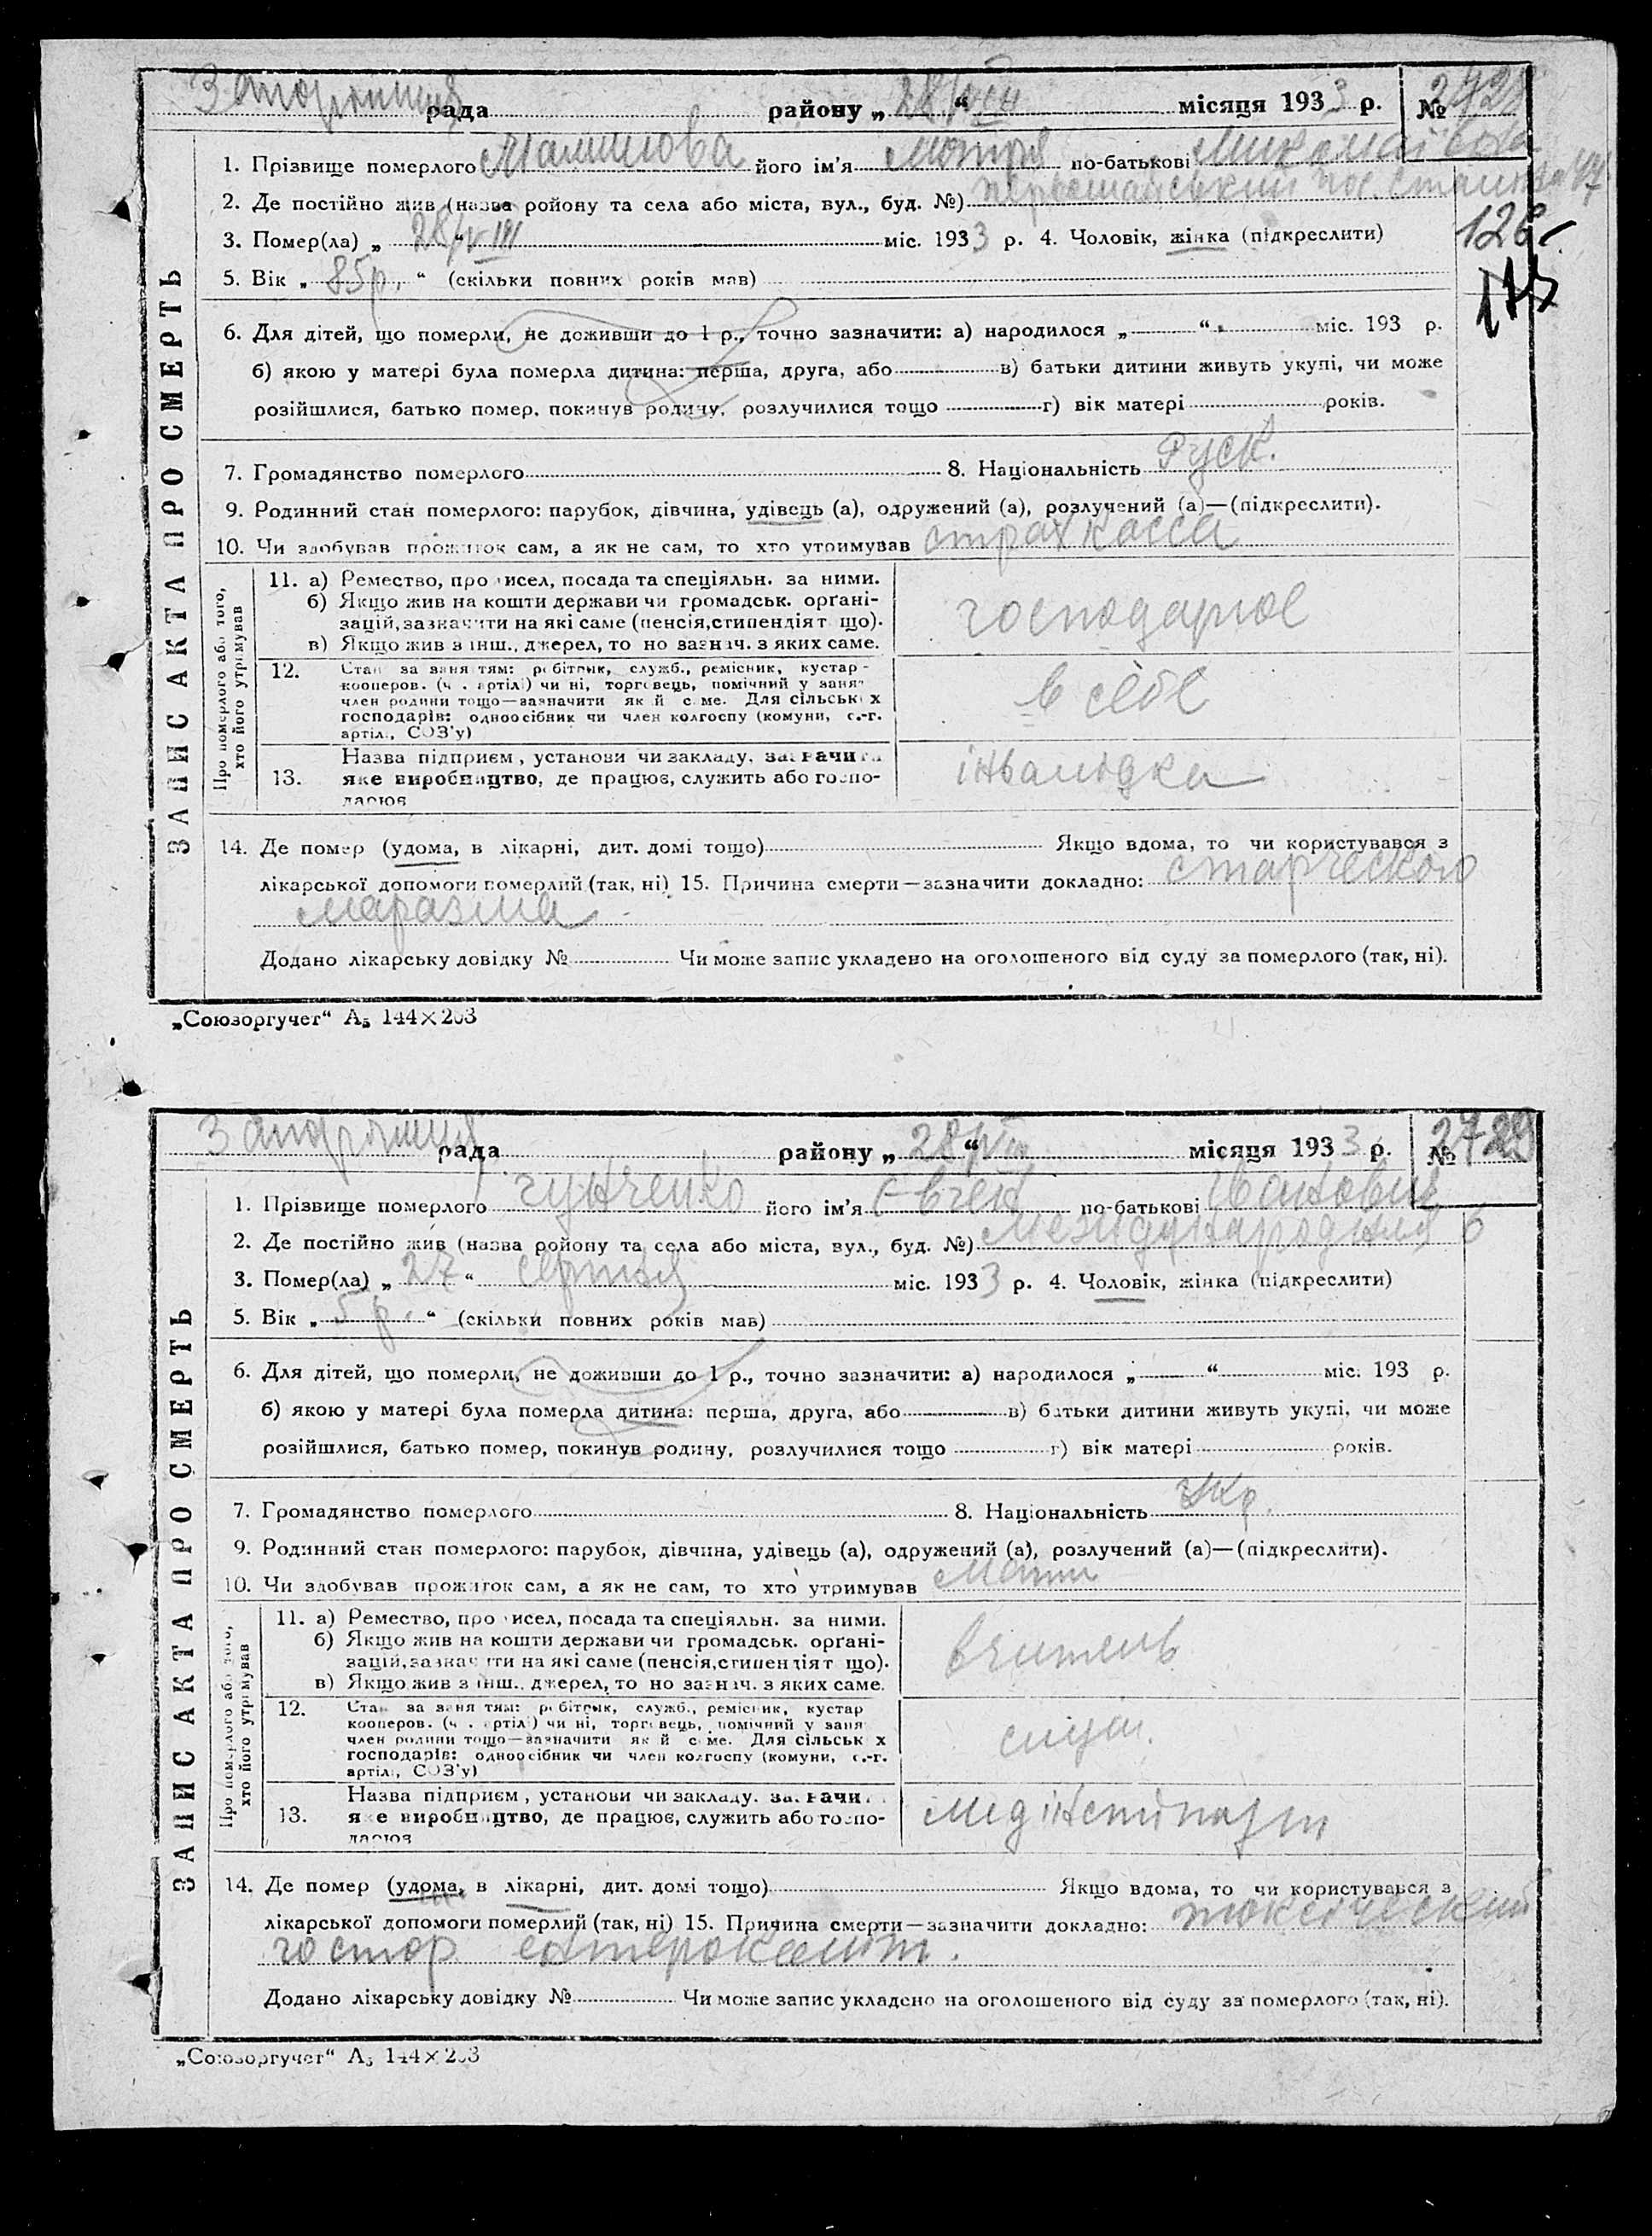 рада району „ 28/VIII “ місяця 1933 р. № 2728
1. Прізвище померлого його ім'я Мотря по-батькові Миколаївна
2. Де постійно жив (назва ройону та села або міста, вул., буд. №) Первомайський
3. Помер(ла) „ 28/VIII “ міс. 1933 р. 4. Чоловік, жінка (підкреслити)
126
5. Вік „ 85 р. “ (скільки повних років мав)
173
6. Для дітей, що померли, не доживши до 1 р., точно зазначити: а) народилося „ “ міс. 193 р.
б) якою у матері була померла дитина: перша, друга, або в) батьки дитини живуть укупі, чи може
розійшлися, батько помер, покинув родину, розлучилися тощо г) вік матері років.
7. Громадянство померлого 8. Національність Руск.
9. Родинний стан померлого: парубок, дівчина, удівець (а), одружений (а), розлучений (а)—(підкреслити).
10. Чи здобував прожиток сам, а як не сам, то хто утримував страхкасса
ЗАПИС АКТА ПРО СМЕРТЬ
Про померлого або того,
хто його утримував
11. а) Ремество, про исел, посада та спеціяльн. за ними.
б) Якщо жив на кошти держави чи громадськ. орґані-
зацій, зазначити на які саме (пенсія, стипендія т що).
в) Якщо жив з інш., джерел, то но зазнач. з яких саме.
господарює
12. Стан за заня тям: робітник, служб., ремісник, кустар -
кооперов. (ч . артілі) чи ні, торговець, помічний у заня
член родини тощо—зазначити як й с ме. Для сільськ х
господарів: одноосібник чи член колгоспу (комуни, с.-г.
артілі, СОЗ'у)
в себе
13. Назва підприєм , установи чи закладу, зазначити
яке виробництво, де працює, служить або госпо-
дарює
інвалідка
14. Де помер (удома, в лікарні, дит. домі тощо) Якщо вдома, то чи користувався з
лікарської допомоги померлий (так, ні) 15. Причина смерти—зазначити докладно: старческого
маразма
Додано лікарську довідку № Чи може запис укладено на оголошеного від суду за померлого (так, ні).
„Союзоргучет“ А5 144×203
рада району „ 28/VIII “ місяця 1933 р. № 2729
1. Прізвище померлого його ім'я Євген по-батькові Іванович
2. Де постійно жив (назва ройону та села або міста, вул., буд. №) 6
3. Помер(ла) „ 27 “ серпня міс. 1933 р. 4. Чоловік, жінка (підкреслити)
5. Вік „ 5 р. “ (скільки повних років мав)
6. Для дітей, що померли, не доживши до 1 р., точно зазначити: а) народилося „ “ міс. 193 р.
б) якою у матері була померла дитина: перша, друга, або в) батьки дитини живуть укупі, чи може
розійшлися, батько помер, покинув родину, розлучилися тощо г) вік матері років.
7. Громадянство померлого 8. Національність Укр.
9. Родинний стан померлого: парубок, дівчина, удівець (а), одружений (а), розлучений (а)—(підкреслити).
10. Чи здобував прожиток сам, а як не сам, то хто утримував Мати
ЗАПИС АКТА ПРО СМЕРТЬ
Про померлого або того,
хто його утримував
11. а) Ремество, про исел, посада та спеціяльн. за ними.
б) Якщо жив на кошти держави чи громадськ. орґані-
зацій, зазначити на які саме (пенсія, стипендія т що).
в) Якщо жив з інш., джерел, то но зазнач. з яких саме.
вчитель
12. Стан за заня тям: робітник, служб., ремісник, кустар
кооперов. (ч . артілі) чи ні, торговець, помічний у заня
член родини тощо—зазначити як й с ме. Для сільськ х
господарів: одноосібник чи член колгоспу (комуни, с.-г.
артілі, СОЗ'у)
служ.
13. Назва підприєм , установи чи закладу, зазначити
яке виробництво, де працює, служить або госпо-
дарює
14. Де помер (удома, в лікарні, дит. домі тощо) Якщо вдома, то чи користувався з
лікарської допомоги померлий (так, ні) 15. Причина смерти—зазначити докладно: токсический
гостор ентероколіт.
Додано лікарську довідку № Чи може запис укладено на оголошеного від суду за померлого (так, ні).
„Союзоргучет“ А5 144×203